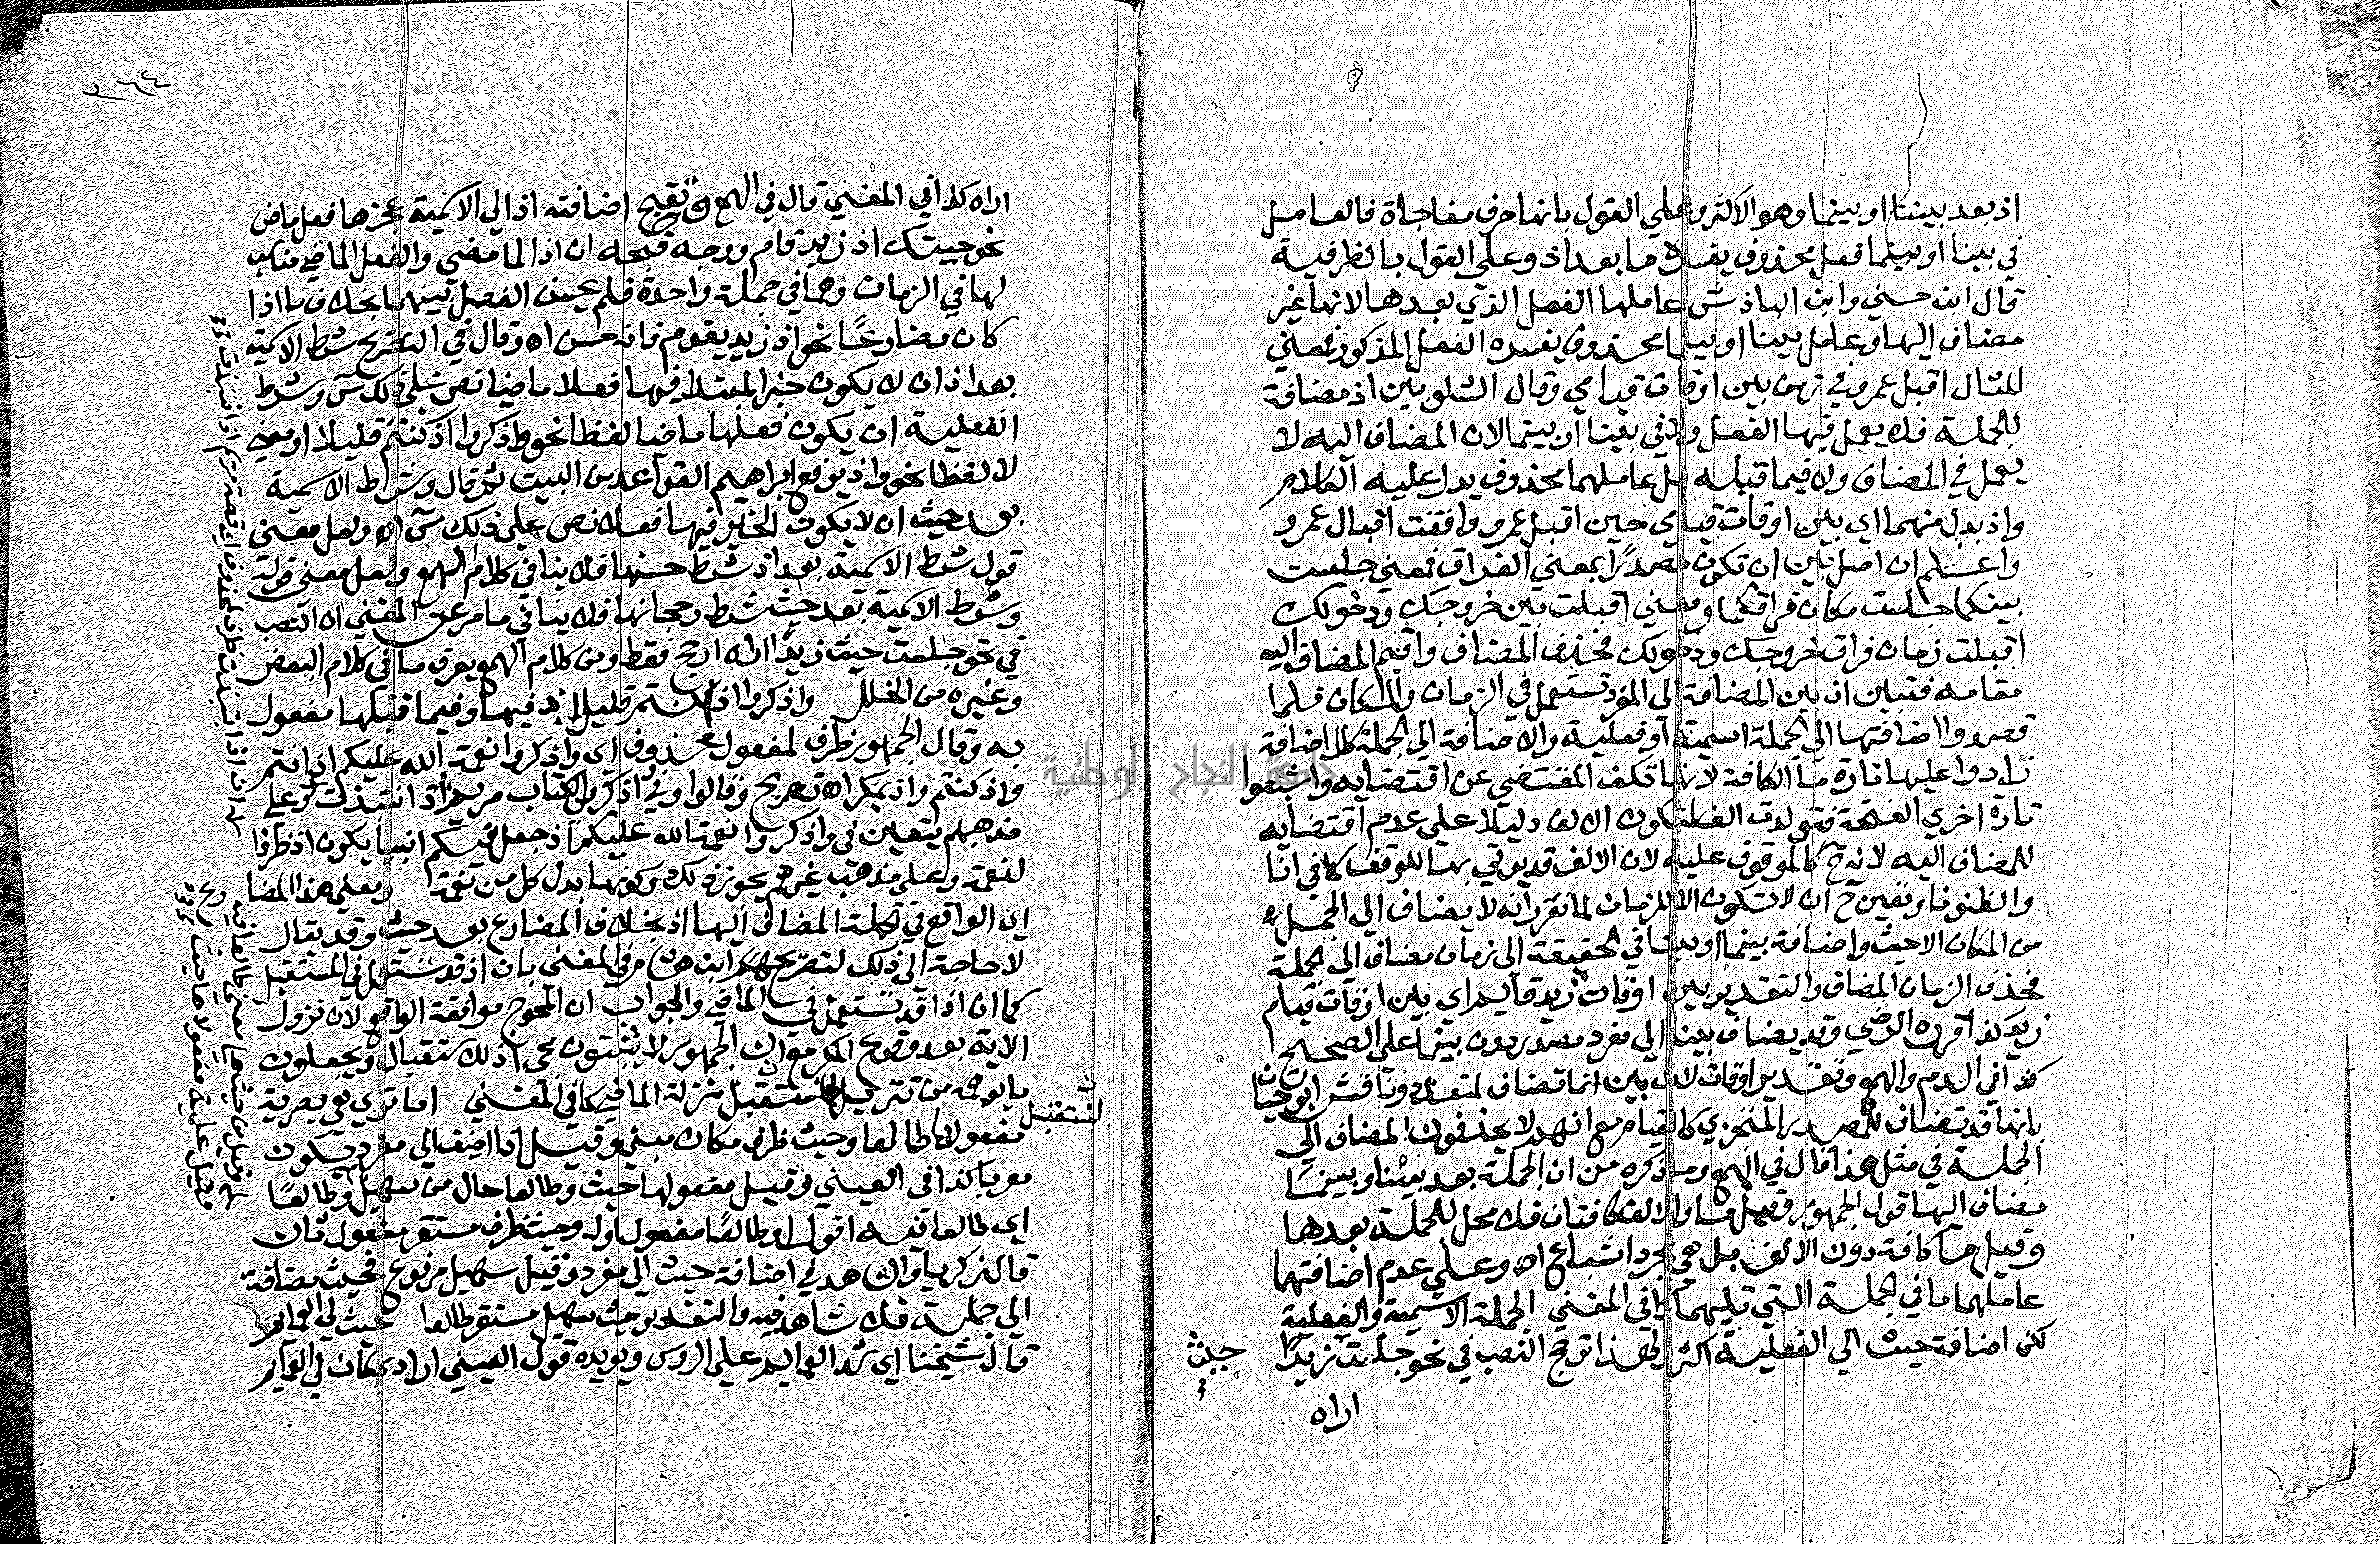 اذ بعد بيننا او بينما وهو الاكثر وعلي القول بانها حرف مفاجاة فالعامل
في بينا او بينما فعل محذوف يفسره ما بعد اذ وعلي القول بالظرفية
قال ابن جني وابن الباذش عاملها الفعل الذي بعدها لانها غير
مضاف اليها وعامل بينا او بينما محذوف يفسره الفعل المذكور فمعني
المثال اقبل عمرو في زمن بين اوقات قيامي وقال الشلوبين اذ مضافة
للجملة فلا يعمل فيها الفعل ولا في بينا او بينما لان المضاف اليه لا
يعمل في المضاف ولا فيما قبله بل عاملهما محذوف يدل عليه الكلام
واذ بدل منهما اي بين اوقات قيامي حين اقبل عمرو وافقت اقبال عمرو
واعلم ان اصل بين ان تكون مصدرًا بمعني الفراق فمعني جلست
بينكما جلست مكان فراقكما ومعني اقبلت بين خروجك ودخولك
اقبلت زمان فراق خروجك ودخولك فحذف المضاف واقيم المضاف اليه
مقامه فتبين ان بين المضافة الي المفرد تستعمل في الزمان والمكان فلما
قصدوا اضافتها الي الجملة اسمية او فعلية والاضافة الي الجملة كلا اضافة
زادوا عليها تارة ما الكافة لانها تكف المقتضي عن اقتضايه واشبعوا
تارة اخري الفتحة فتولدت الف لتكون الالف دليلا علي عدم اقتضايه
للمضاف اليه لانه ح كالموقوف عليه لان الالف قد يوتي بها للوقف كما في انا
والظنونا وتعين ح ان لا تكون الا للزمان لما تقرر انه لا يضاف الي الجمل
من المكان الا حيث واضافة بينما او بينا في الحقيقة الي زمان مضاف الي الجملة
فحذف الزمان المضاف والتقدير بين اوقات زيد قايم اي بين اوقات قيام
زيد كذا قرره الرضي وقد يضاف بينا الي مفرد مصدر دون بينما علي الصحيح
كذا في الدم والهمع وتقدير اوقات لان بين انما تضاف لمتعدد وناقش ابو حيان
بانها قد تضاف للمصدر المتجزي كالقيام مع انهم لا يحذفون المضاف الي
الجملة في مثل هذا قال في الهمع وما ذكره من ان الجملة بعد بينا وبينما
مضاف اليها قول الجمهور وقيل ما والالف كافتان فلا محل للجملة بعدها
وقيل ما كافة دون الالف بل هي مجرد اشباع اه وعلي عدم اضافتهما
عاملهما ما في الجملة التي تليهما كذا في المغني الجملة الاسمية والفعلية
لكن اضافة حيث الي الفعلية اكثر ولهذا ترجح النصب في نحو جلست زيدا
حيث
اراه
جامعة النجاح الوطنية
٣٦٤
اراه كذا في المغني قال في الهمع وتقبح اضافته اذ الي الاسمية عجزها فعل ماض
نحو جيتك اذ زيد قام ووجه قبحه ان اذ لما مضي والفعل الماضي مناسب
لها في الزمان وهما في جملة واحدة فلم يحسن الفصل بينهما بخلاف ما اذا
كان مضارعًا نحو اذ زيد يقوم فانه حسن اه وقال في التصريح شرط الاسمية
بعد اذ ان لا يكون خبر المبتدا فيها فعلا ماضيا نص علي ذلك س وشرط
الفعلية ان يكون فعلها ماضيا لفظا نحو واذكروا اذ كنتم قليلا او معني
لا لفظا نحو واذ يرفع ابراهيم القواعد من البيت ثم قال وشرط الاسمية
بعد حيث ان لا يكون الخبر فيها فعلا نص علي ذلك س اه ولعل معني
قول شرط الاسمية بعد اذ شرط حسنها فلا ينافي كلام الهمع ولعل معني قوله
وشرط الاسمية بعد حيث شرط رجحانها فلا ينافي ما مر عن المغني ان النصب
في نحو جلست حيث زيدًا اراه ارجح فقط ومن كلام الهمع يعرف ما في كلام البعض
وغيره من الخلل واذكروا اذ كنتم قليلا اذ فيها وفيما قبلها مفعول
به وقال الجمهور ظرف لمفعول محذوف اي واذكروا نعمة الله عليكم اذ انتم
واذ كنتم واذ يمكر اه تصريح وقالوا في واذكر في الكتاب مريم اذ انتبذت وعلي
مذهبهم يتعين في واذكروا نعمة الله عليكم اذ جعل فيكم انبيا يكون اذ ظرفا
لنعمة وعلي مذهب غيرهم يجوز ذلك وكونها بدل كل من نعمة ومعني هذا المضا
اي الواقع في الجملة المضاف اليها اذ بخلاف المضارع بعد حيث وقد يقال
لا حاجة الي ذلك لتصريح ابن هشام في المغني بان اذ قد تستعمل في المستقبل
كما ان اذا قد تستعمل في الماضي والجواب ان المحوج موافقة الواقع لان نزول
الاية بعد وقوع المكر مع ان الجمهور لا يثبتون مجي اذ للاستقبال ويجعلون
ما يوهمه من تنزيل المستقبل منزلة الماضي كما في المغني اما تري هي بصرية
المستقبل
مفعولها طالعا وحيث ظرف مكان مبني وقيل اذا اضف الي مفرد تكون
معربا كذا في العيني وقيل مفعولها حيث وطالعا حال من سهيل او طالعًا
اي طالعا فيه اقول او طالعًا مفعول اول وحيث ظرف مستقر مفعول ثان
قال زكريا والشاهد في اضافة حيث الي مفرد وقيل سهيل مرفوع فحيث مضافة
الي جملة فلا شاهد فيه والتقدير حيث سهيل مستقر طالعا حيث لي العمايم
قال شيخنا اي شد العمايم علي الروس ويويده قول العيني اراد بمكان لي العمايم